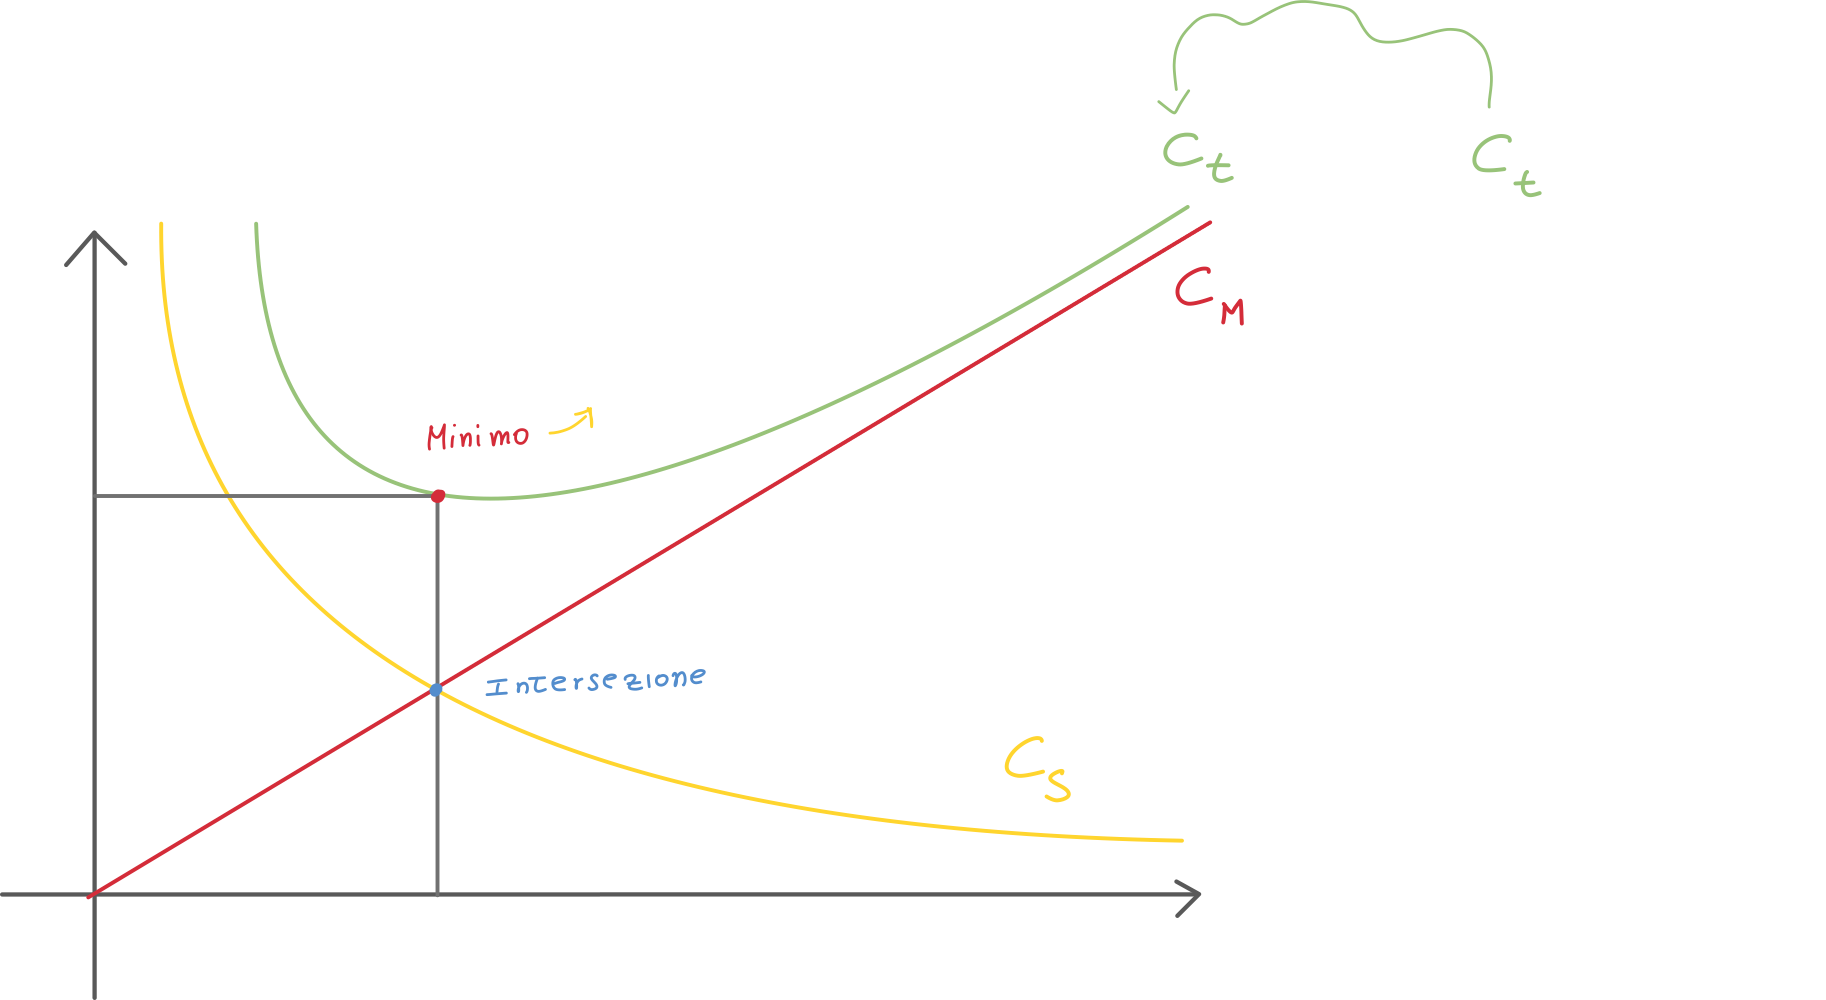 C_t
C_t
C_M
Minimo
Intersezione
C_s